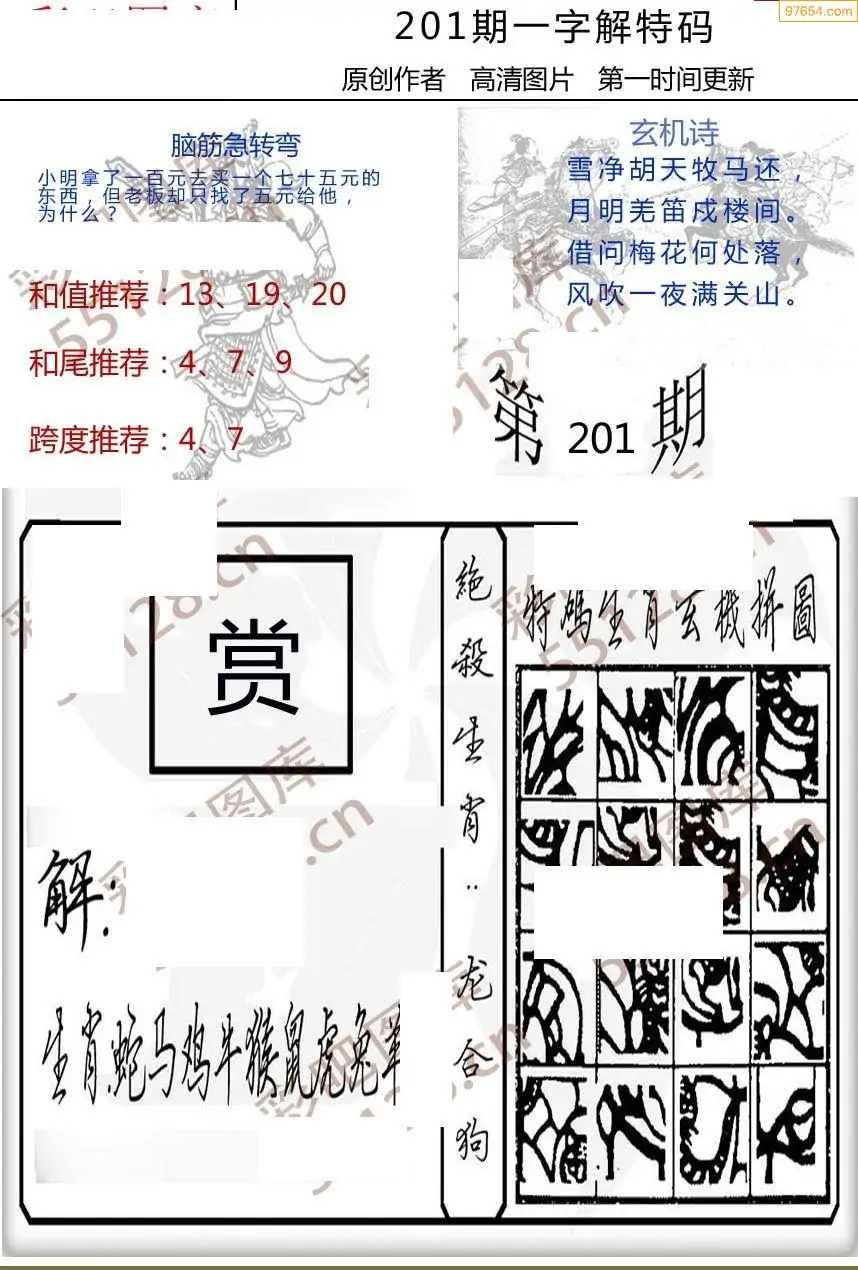 97654.com
201期一字解特码
原创作者 高清图片 第一时间更新
脑筋急转弯
小明拿了一百元去买一个七十五元的
东西，但老板却只找了五元给他，
为什么？
和值推荐：13、19、20
和尾推荐：4、7、9
跨度推荐：4、7
玄机诗
雪净胡天牧马还，
月明羌笛戍楼间。
借问梅花何处落，
风吹一夜满关山。
第 201 期
赏
解：
生肖蛇马鸡牛猴鼠虎兔
絶殺生肖：龙合狗
特碼生肖玄機拼圖